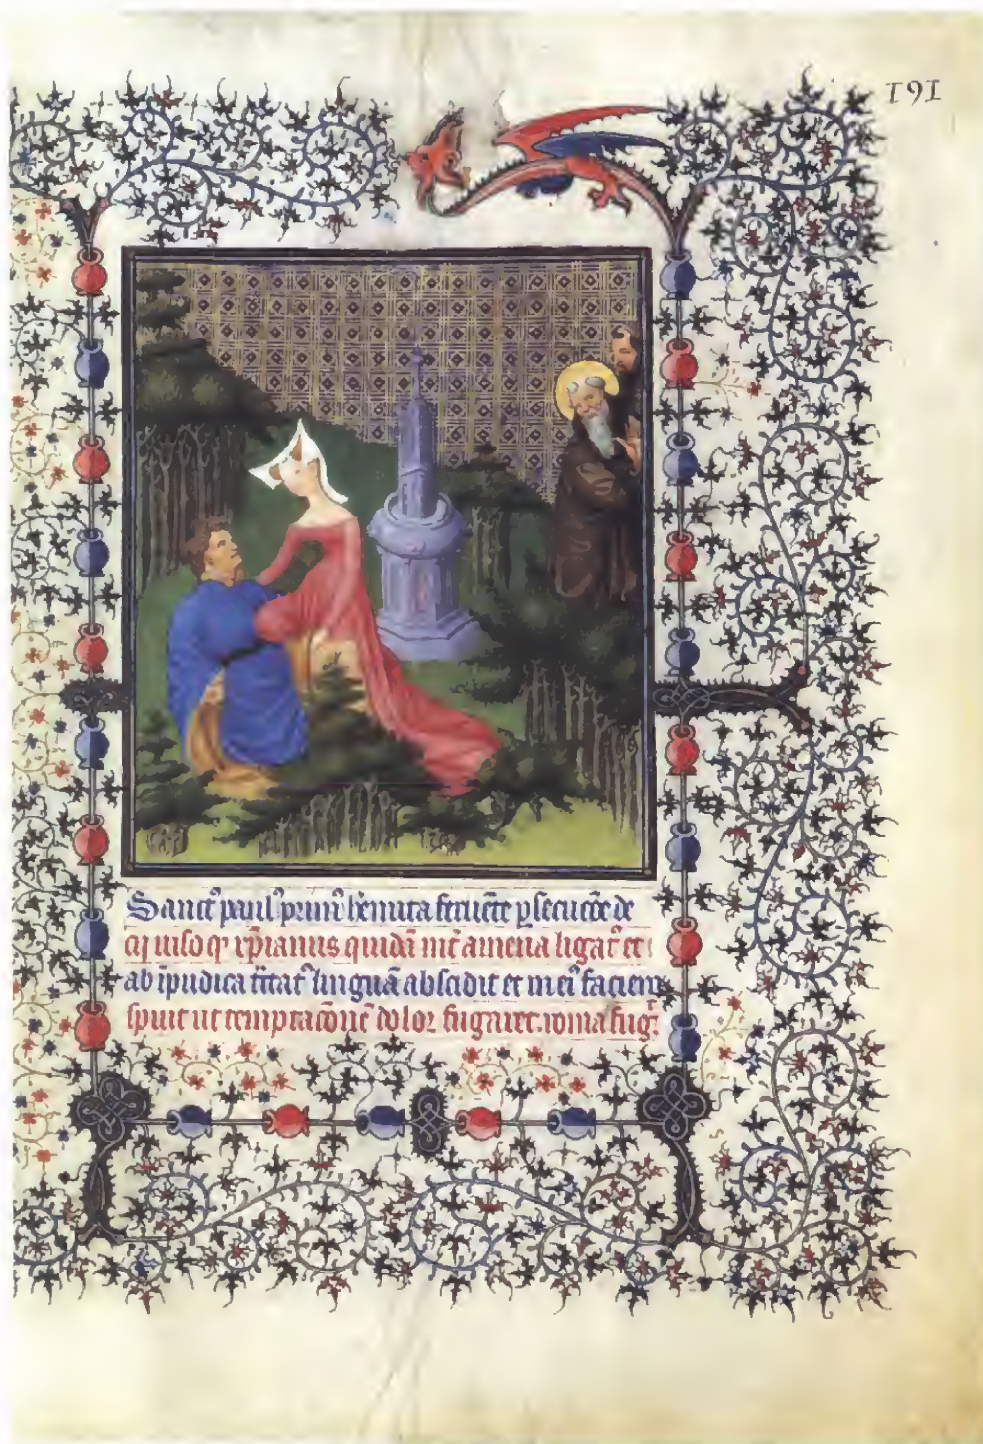 191
Sanct⁹ paul⁹ prim⁹ h̓emita feruēte p̱secucōe de
cij uiso qȝ xp̄ianus quidā int̓ amena ligat⁹ et
ab īpudica t̓ctat⁹ linguā abscidit et in ei⁹ faciem
spuit ut temptacōnē dolor fugaret. roma fug̓